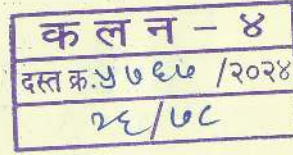 क ल न - ४
दस्त क्र. ५७६७ /२०२४
२६/७८